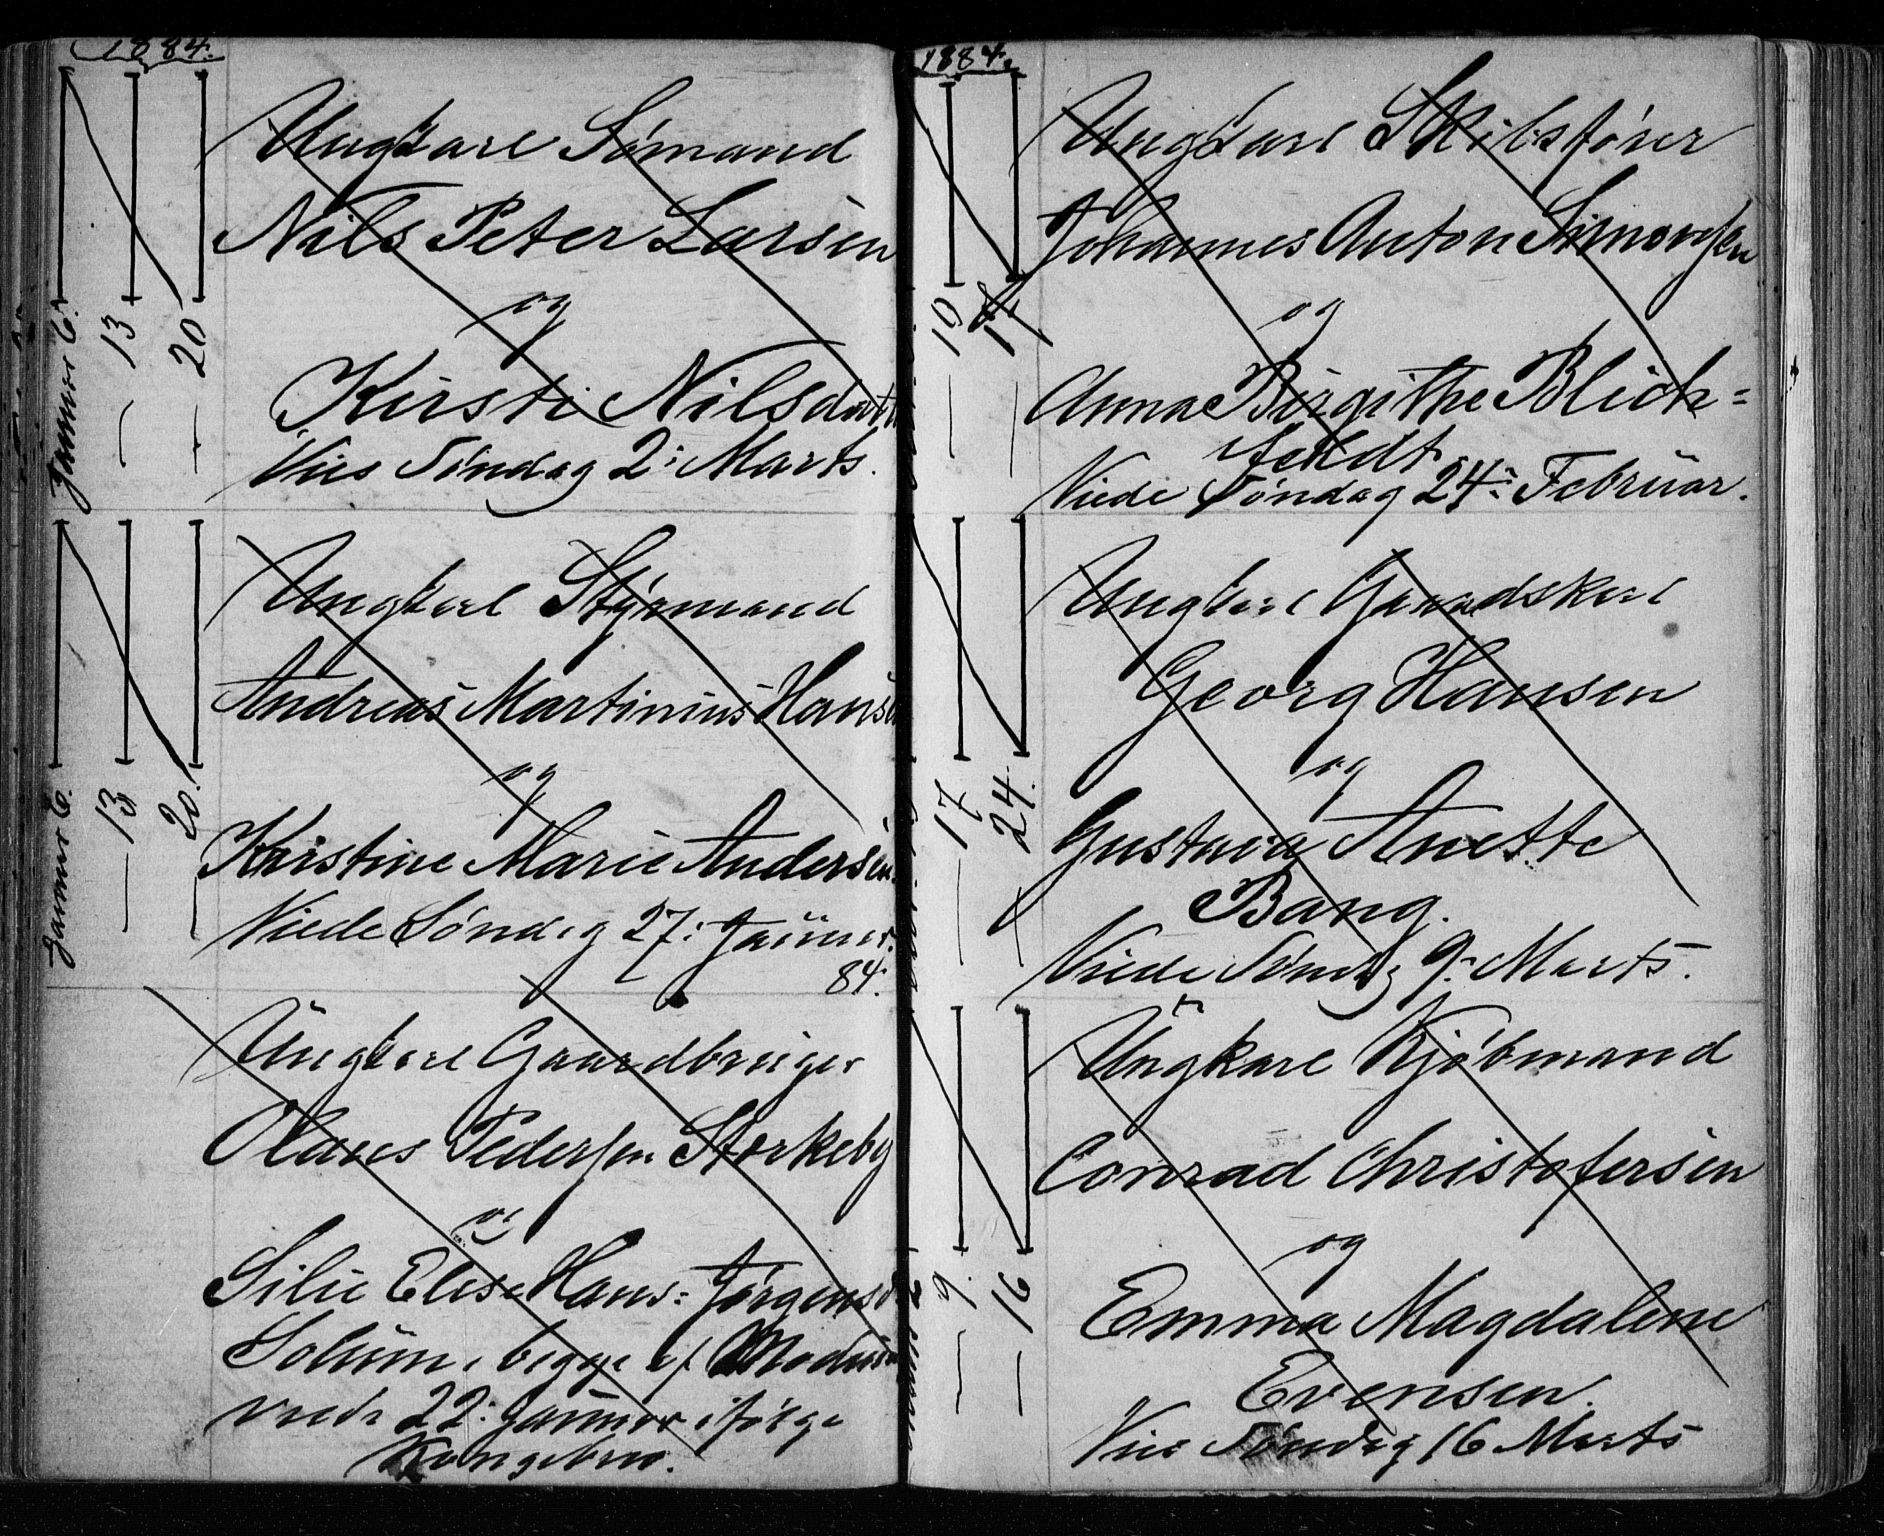 1884.
Ungkarl Sømand
Nils Peter Larsen
og
Kirsti Nilsdatt
Vies Søndag 2: Marts.
Januar 6.
— 13
— 20
Ungkarl Styrmand
Andreas Martinius Hansen
og
Kristine Marie Andersen.
Viede Søndag 27: Januar.
84.
Januar 6.
— 13
— 20.
Ungkarl Gaardbruger
Olaves Pedersen Storkeby
og
Silie Elise Hans: Jørgensd
Solum, begge af
viede 22: Januar ifølge
Kongebrev.
1884.
Ungkarl Skibsfører
Johannes Anton Simonsen
og
Anna Birgithe Blich=
feldt.
Viede Søndag 24: Februar.
— 10
— 17
Ungkarl Gaardskarl
Georg Hansen
og
Gustava Anette
Bang.
Viede Søndag 9: Marts.
— 17
— 24.
Ungkarl Kjøbmand
Conrad Christofersen
og
Emma Magdalene
Evensen.
Vies Søndag 16 Marts
— 9.
— 16